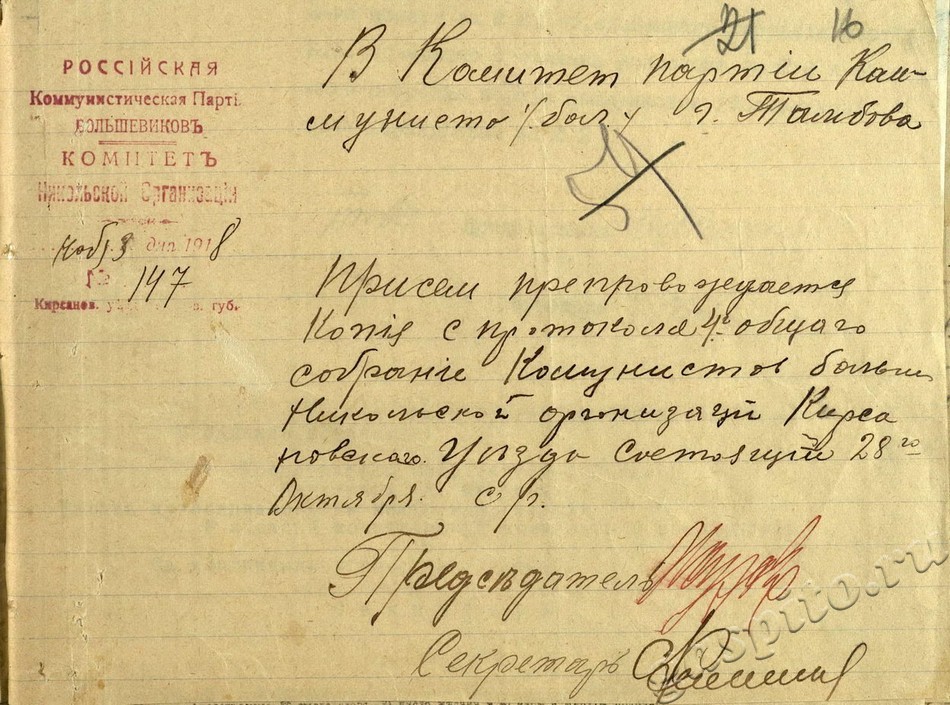 21 16
РОССІЙСКАЯ
Коммунистическая Парті.
БОЛЬШЕВИКОВЪ
КОМИТЕТЪ
Никольской Организаціи
нояб 3 дня 1918
№ 147
Кирсанов. у губ.
В Комитет партіи Ком-
мунистов /бол/ г. Тамбова
Присем препровождается
Копія с протокола 4го общаго
собраніе Комунистов больш
Никольской организаціи Кирса
новскаго Уѣзда состоящій 28го
Октября с г.
Предсѣдатель
Секретарь
gaspito.ru